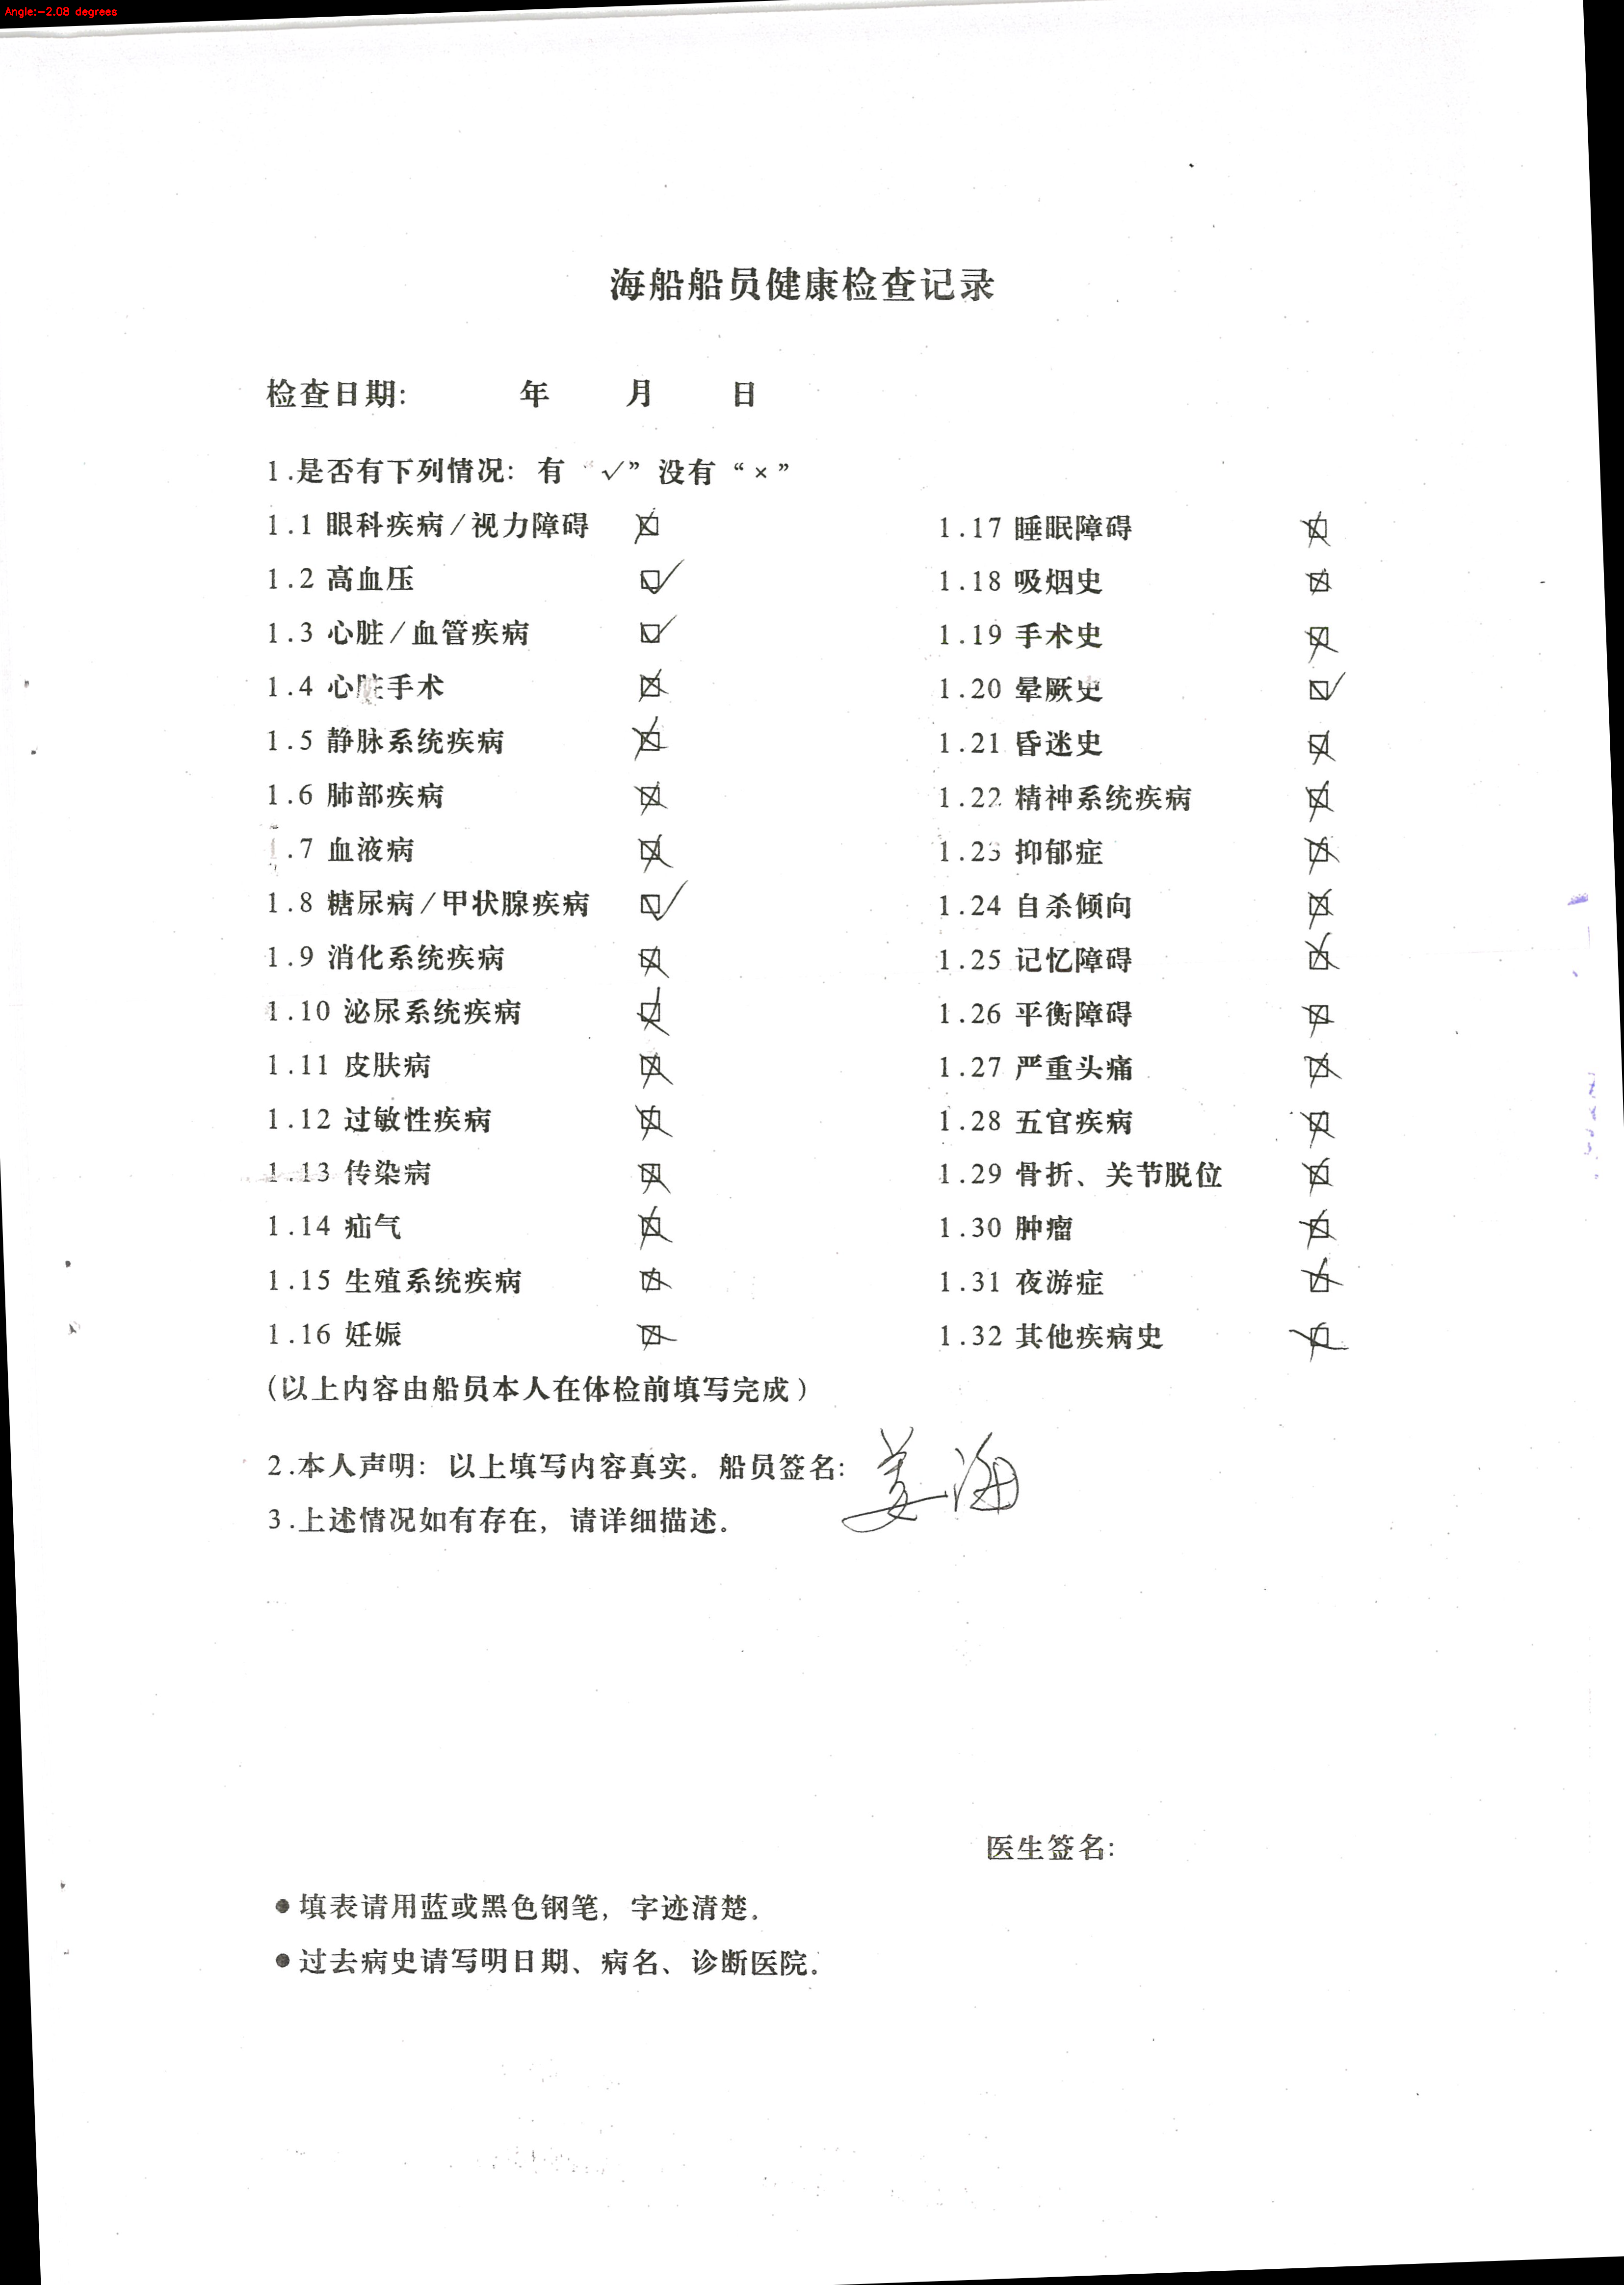 Angle:-2.08 degrees
海船船员健康检查记录
检查日期: 年 月 日
1.是否有下列情况: 有 “√” 没有 “×”
1.1 眼科疾病/视力障碍 ☒
1.2 高血压 ☑
1.3 心脏/血管疾病 ☑
1.4 心脏手术 ☒
1.5 静脉系统疾病 ☒
1.6 肺部疾病 ☒
1.7 血液病 ☒
1.8 糖尿病/甲状腺疾病 ☑
1.9 消化系统疾病 ☒
1.10 泌尿系统疾病 ☒
1.11 皮肤病 ☒
1.12 过敏性疾病 ☒
1.13 传染病 ☒
1.14 疝气 ☒
1.15 生殖系统疾病 ☒
1.16 妊娠 ☒
1.17 睡眠障碍 ☒
1.18 吸烟史 ☒
1.19 手术史 ☒
1.20 晕厥史 ☑
1.21 昏迷史 ☒
1.22 精神系统疾病 ☒
1.23 抑郁症 ☒
1.24 自杀倾向 ☒
1.25 记忆障碍 ☒
1.26 平衡障碍 ☒
1.27 严重头痛 ☒
1.28 五官疾病 ☒
1.29 骨折、关节脱位 ☒
1.30 肿瘤 ☒
1.31 夜游症 ☒
1.32 其他疾病史 ☒
(以上内容由船员本人在体检前填写完成)
2.本人声明: 以上填写内容真实。船员签名: 姜海
3.上述情况如有存在, 请详细描述。
医生签名:
●填表请用蓝或黑色钢笔, 字迹清楚。
●过去病史请写明日期、病名、诊断医院。